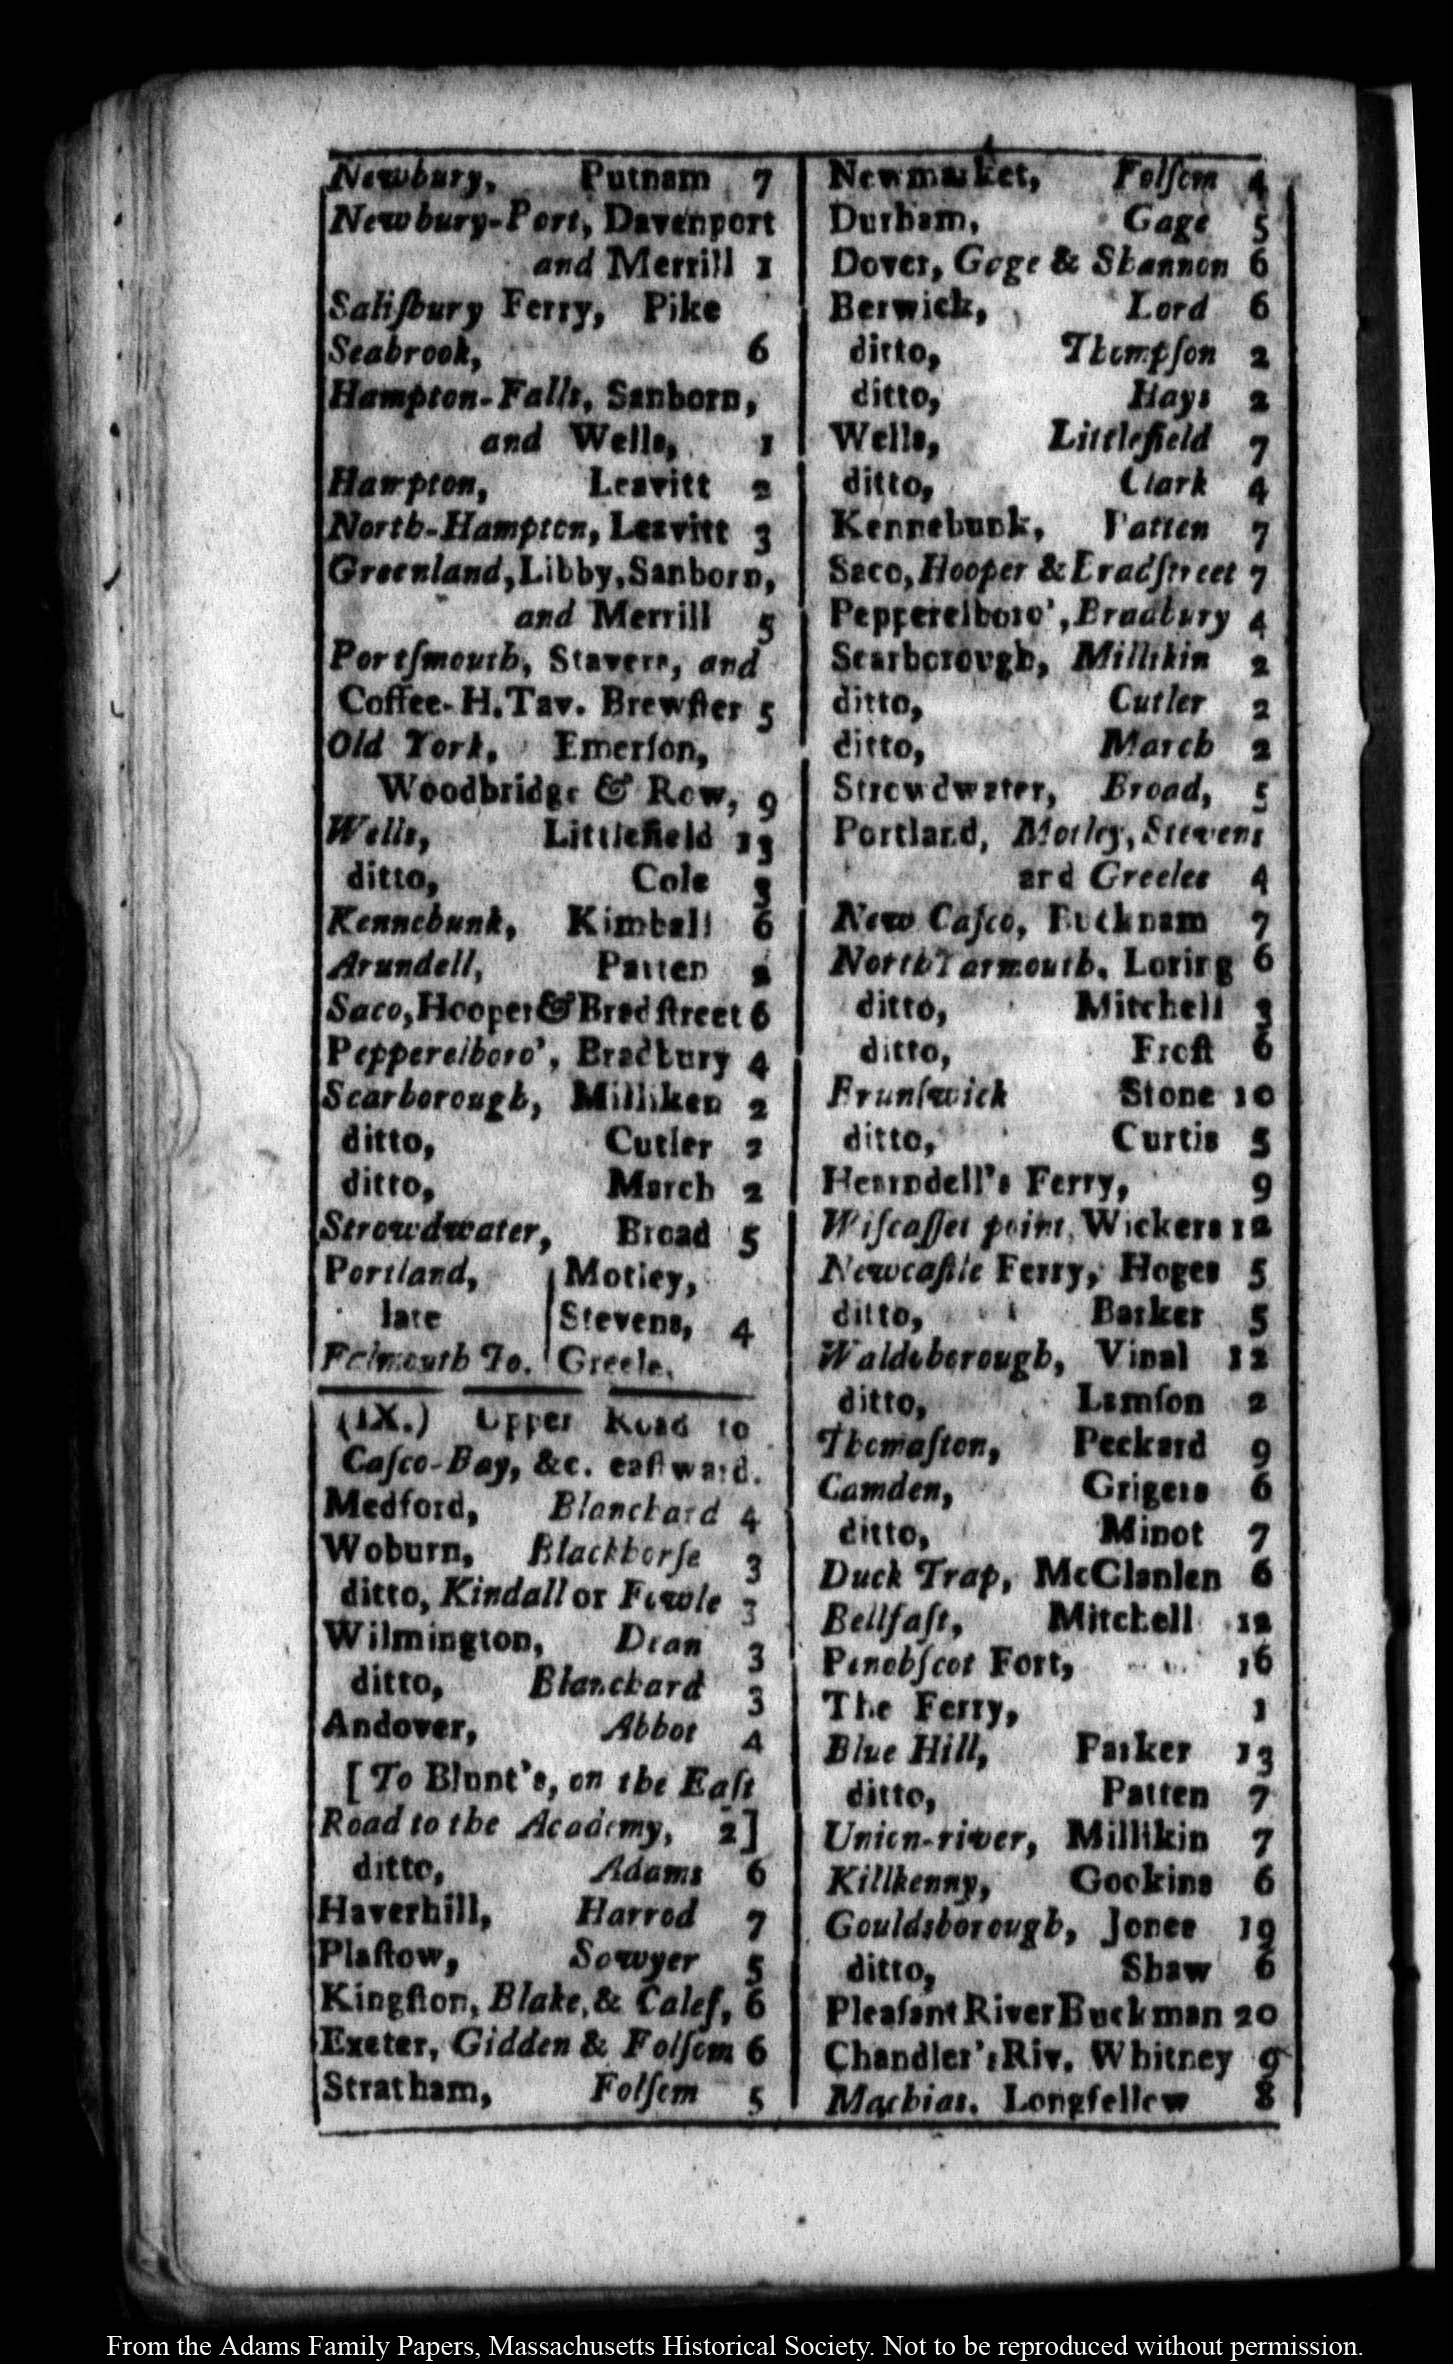 Newbury, Putnam 7
Newbury-Port, Davenport
and Merrill 1
Saliſbury Ferry, Pike
Seabrook, 6
Hampton-Falls, Sanborn,
and Wells, 1
Hampton, Leavitt 2
North-Hampton, Leavitt 3
Greenland, Libby, Sanborn,
and Merrill 5
Portſmouth, Stavers, and
Coffee-H. Tav. Brewſter 5
Old York, Emerſon,
Woodbridge & Row, 9
Wells, Littlefield 13
ditto, Cole 3
Kennebunk, Kimball 6
Arundell, Patten 2
Saco, Hooper & Bradſtreet 6
Pepperelboro', Bradbury 4
Scarborough, Milliken 2
ditto, Cutler 2
ditto, March 2
Strowdwater, Broad 5
Portland, Motley,
late Stevens, 4
Falmouth To. Greele,
(IX.) Upper Road to
Caſco-Bay, &c. eaſtward.
Medford, Blanchard 4
Woburn, Blackhorſe 3
ditto, Kindall or Fowle 3
Wilmington, Dean 3
ditto, Blanchard 3
Andover, Abbot 4
[To Blunt's, on the Eaſt
Road to the Academy, 2]
ditto, Adams 6
Haverhill, Harrod 7
Plaſtow, Sowyer 5
Kingſton, Blake, & Calef, 6
Exeter, Gidden & Folſom 6
Stratham, Folſom 5
Newmarket, Folſom 4
Durham, Gage 5
Dover, Gage & Shannon 6
Berwick, Lord 6
ditto, Thompſon 2
ditto, Hays 2
Wells, Littlefield 7
ditto, Clark 4
Kennebunk, Patten 7
Saco, Hooper & Bradſtreet 7
Pepperelboro', Bradbury 4
Scarborough, Millikin 2
ditto, Cutler 2
ditto, March 2
Strowdwater, Broad, 5
Portland, Motley, Stevens
and Greelee 4
New Caſco, Bucknam 7
North Yarmouth, Loring 6
ditto, Mitchell 3
ditto, Froſt 6
Brunſwick Stone 10
ditto, Curtis 5
Hearndell's Ferry, 9
Wiſcaſſet point, Wickers 12
Newcaſtle Ferry, Hoges 5
ditto, Barker 5
Waldoborough, Vinal 12
ditto, Lamſon 2
Thomaſton, Peckard 9
Camden, Grigers 6
ditto, Minot 7
Duck Trap, McClanlen 6
Bellfaſt, Mitchell 12
Penobſcot Fort, 16
The Ferry, 1
Blue Hill, Parker 13
ditto, Patten 7
Union-river, Millikin 7
Killkenny, Gookins 6
Gouldsborough, Jones 19
ditto, Shaw 6
Pleaſant River Buckman 20
Chandler's Riv. Whitney 9
Machias, Longfellow 8
From the Adams Family Papers, Massachusetts Historical Society. Not to be reproduced without permission.